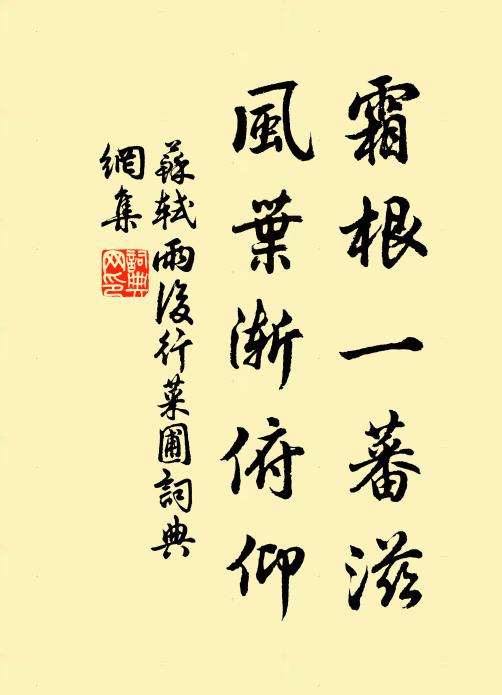 霜根一蕃滋
風葉漸俯仰
蘇軾雨後行菜圃詞典
網集
詞典
网印